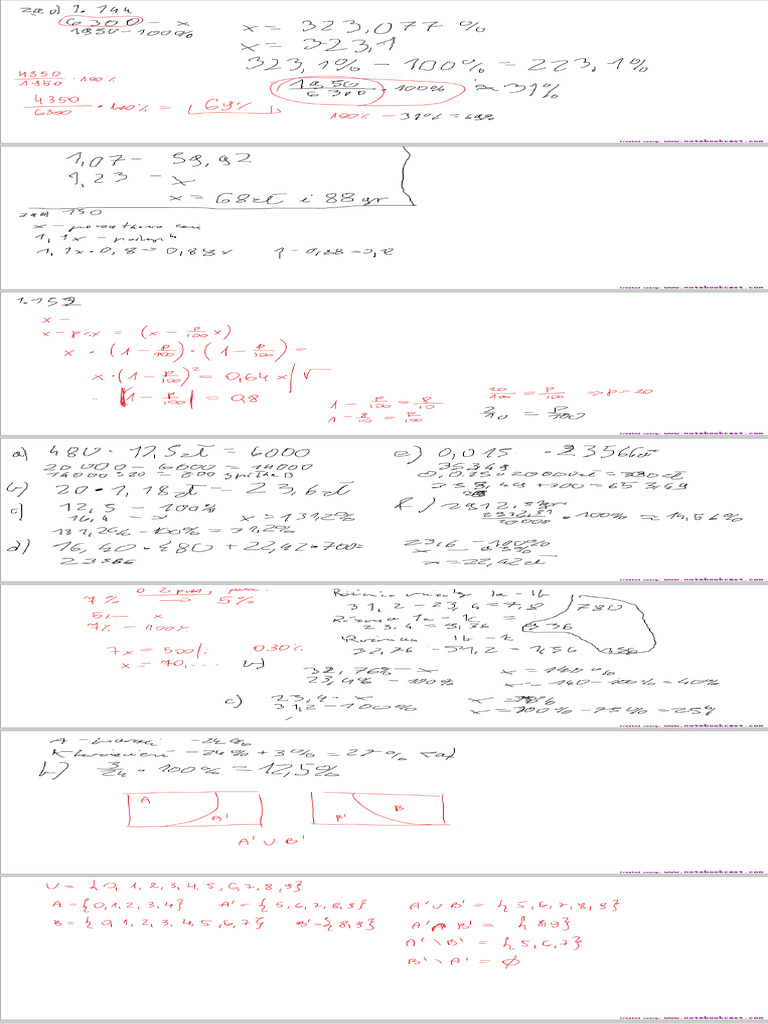 zad 1.144
6300 - x
1950 - 100%
x = 323,077 %
x = 323,1
323,1% - 100% = 223,1%
4350/1950 · 100%
4350/6300 · 100% = 69%
1950/6300 · 100% ≈ 31%
100% - 31% = 69%
Created using: www.notebookcast.com
1,07 - 59,92
1,23 - x
x = 68zł i 88gr
zad 150
x - początkowa cena
1,1x · 0,8 = 0,88x
1 - 0,88 = 0,12
Created using: www.notebookcast.com
1.152
x -
x - p%x = (x - p/100 x)
x · (1 - p/100) · (1 - p/100) =
x · (1 - p/100)² = 0,64 x | √
|1 - p/100| = 0,8
1 - p/100 = 8/10
1 - 8/10 = p/100
20/100 = p/100 => p = 20
2/10 = p/100
Created using: www.notebookcast.com
a) 480 · 12,5zł = 6000
20000 - 6000 = 14000
b) 20 · 1,18zł = 23,6zł
c) 12,5 - 100%
16,4 - x
x = 131,2%
131,2% - 100% = 31,2%
d) 16,40 · 480 + 22,42 · 700 =
23566
e) 0,015 · 23566zł
353,49
f) 2912,51gr
· 100% ≈ 14,56%
23,6 - 100%
x - 95%
x = 22,42zł
Created using: www.notebookcast.com
7% → 5%
5% - x
7% - 100%
7x = 500%
x = 70,...
0,30%
31,2 - 23,4 = 7,8
780
936
32,76 - 31,2 = 1,56
156
b)
32,76% - x
23,4% - 100%
x = 140%
x = 140 - 100% = 40%
c)
23,4 - x
31,2 - 100%
x = 75%
x = 100% - 75% = 25%
Created using: www.notebookcast.com
- 24%
Kwiecień - 24% + 3% = 27%
b) 3/24 · 100% = 12,5%
A
A'
B'
B
A' ∪ B'
Created using: www.notebookcast.com
U = {0, 1, 2, 3, 4, 5, 6, 7, 8, 9}
A = {0, 1, 2, 3, 4} A' = {5, 6, 7, 8, 9}
B = {0, 1, 2, 3, 4, 5, 6, 7} B' = {8, 9}
A' ∪ B' = {5, 6, 7, 8, 9}
A' ∩ B' = {8, 9}
A' \ B' = {5, 6, 7}
B' \ A' = ∅
Created using: www.notebookcast.com